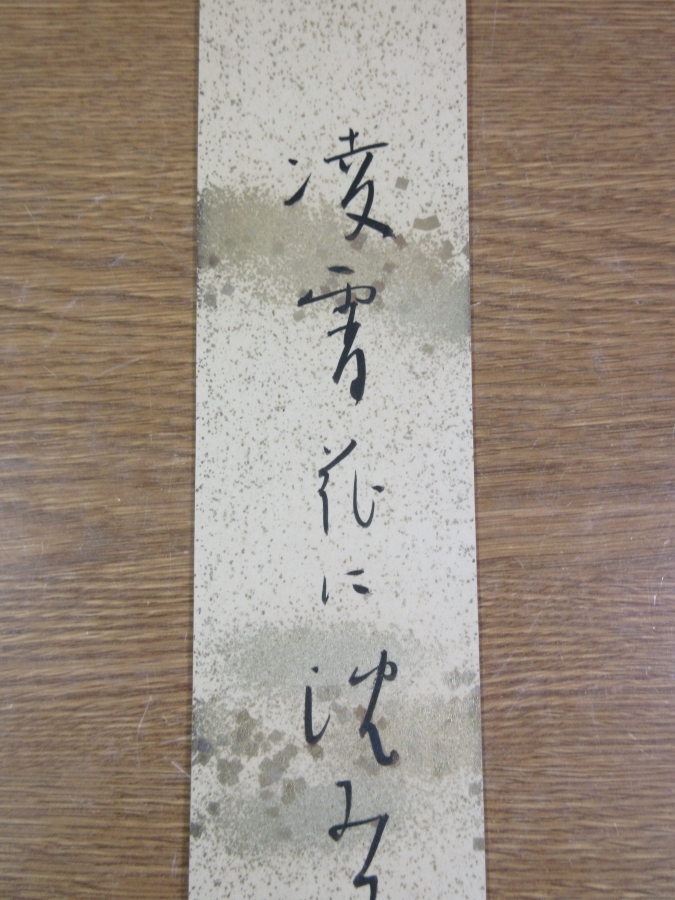 凌霄花に沈み